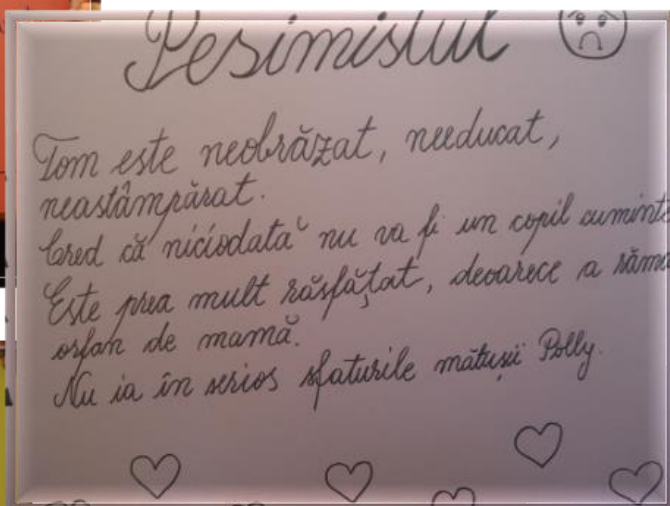 Pesimistul
Tom este neobrăzat, needucat,
neastâmpărat.
Cred că niciodată nu va fi un copil
Este prea mult răsfățat, deoarece a
orfan de mamă.
Nu ia în serios sfaturile mătușii Polly.